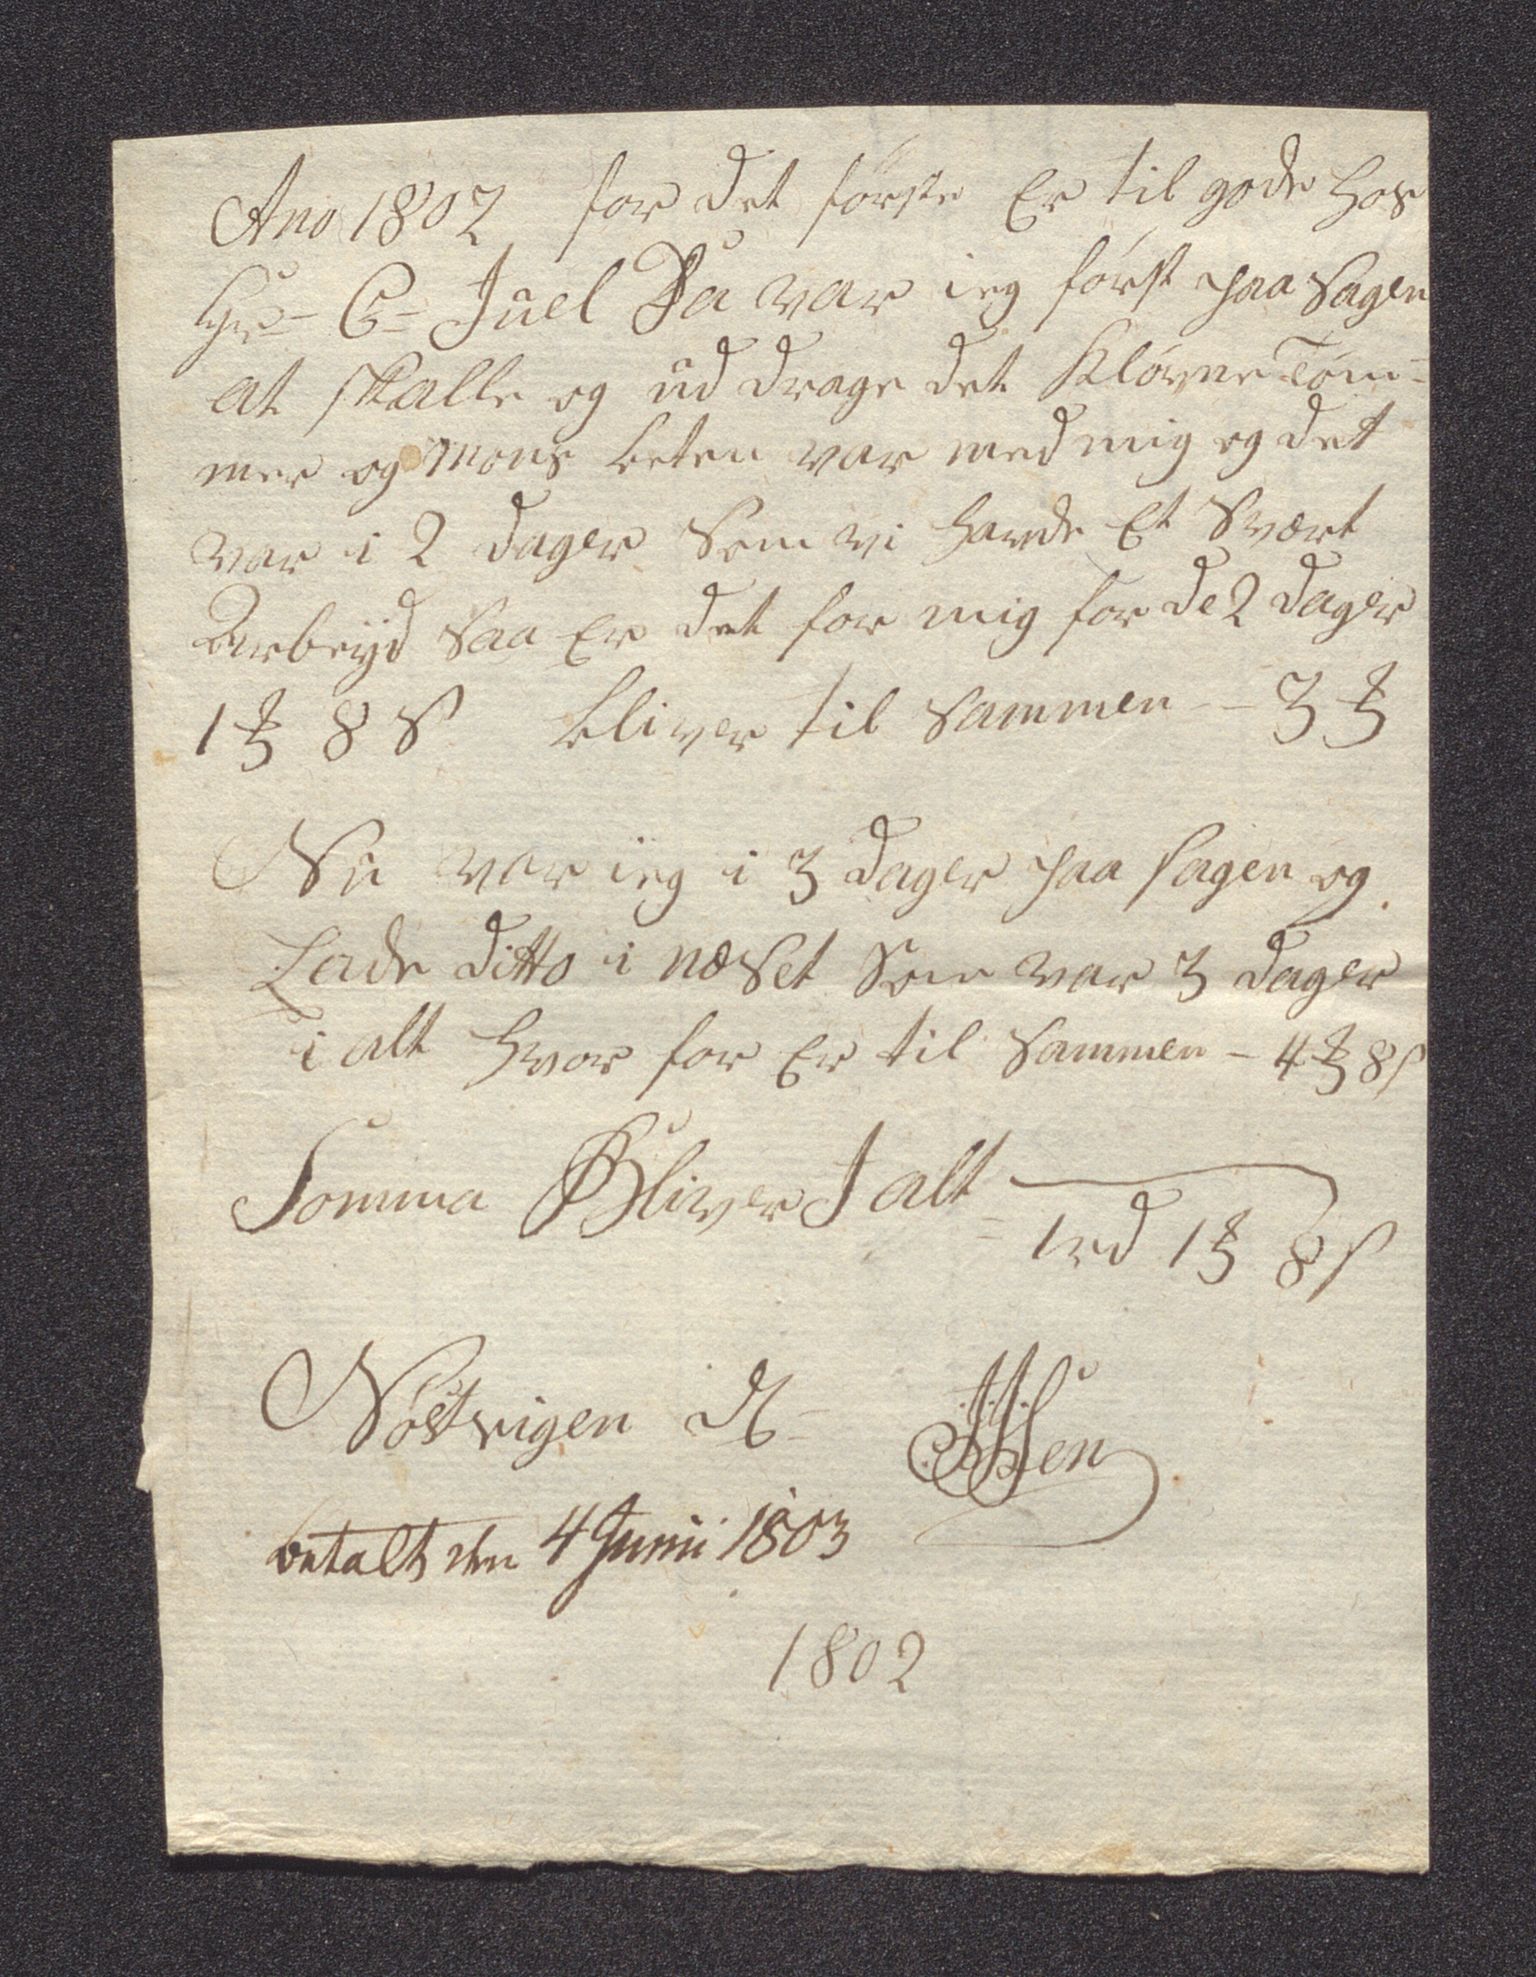 Ano 1802 for det første Er til gode hos
Hr= C= Juel Da var ieg først paa Sagen
at skalle og ud drage det Kløvne Tøm=
mer og Mons beten var med mig og det
var i 2 dager Som vi havde Et Svært
Arbeyd Saa Er det for mig for de 2 dager
1 ℳ 8 S bliver til Sammen -- 3 ℳ
Nu var ieg i 3 dager paa Sagen og
Lade ditto i næSet Som var 3 dager
i alt hvor for Er til Sammen - 4 ℳ 8 s
Somma Bliver J alt
1 rd 1 ℳ 8 s
Nøstvigen d
betalt den 4 Junii 1803
1802